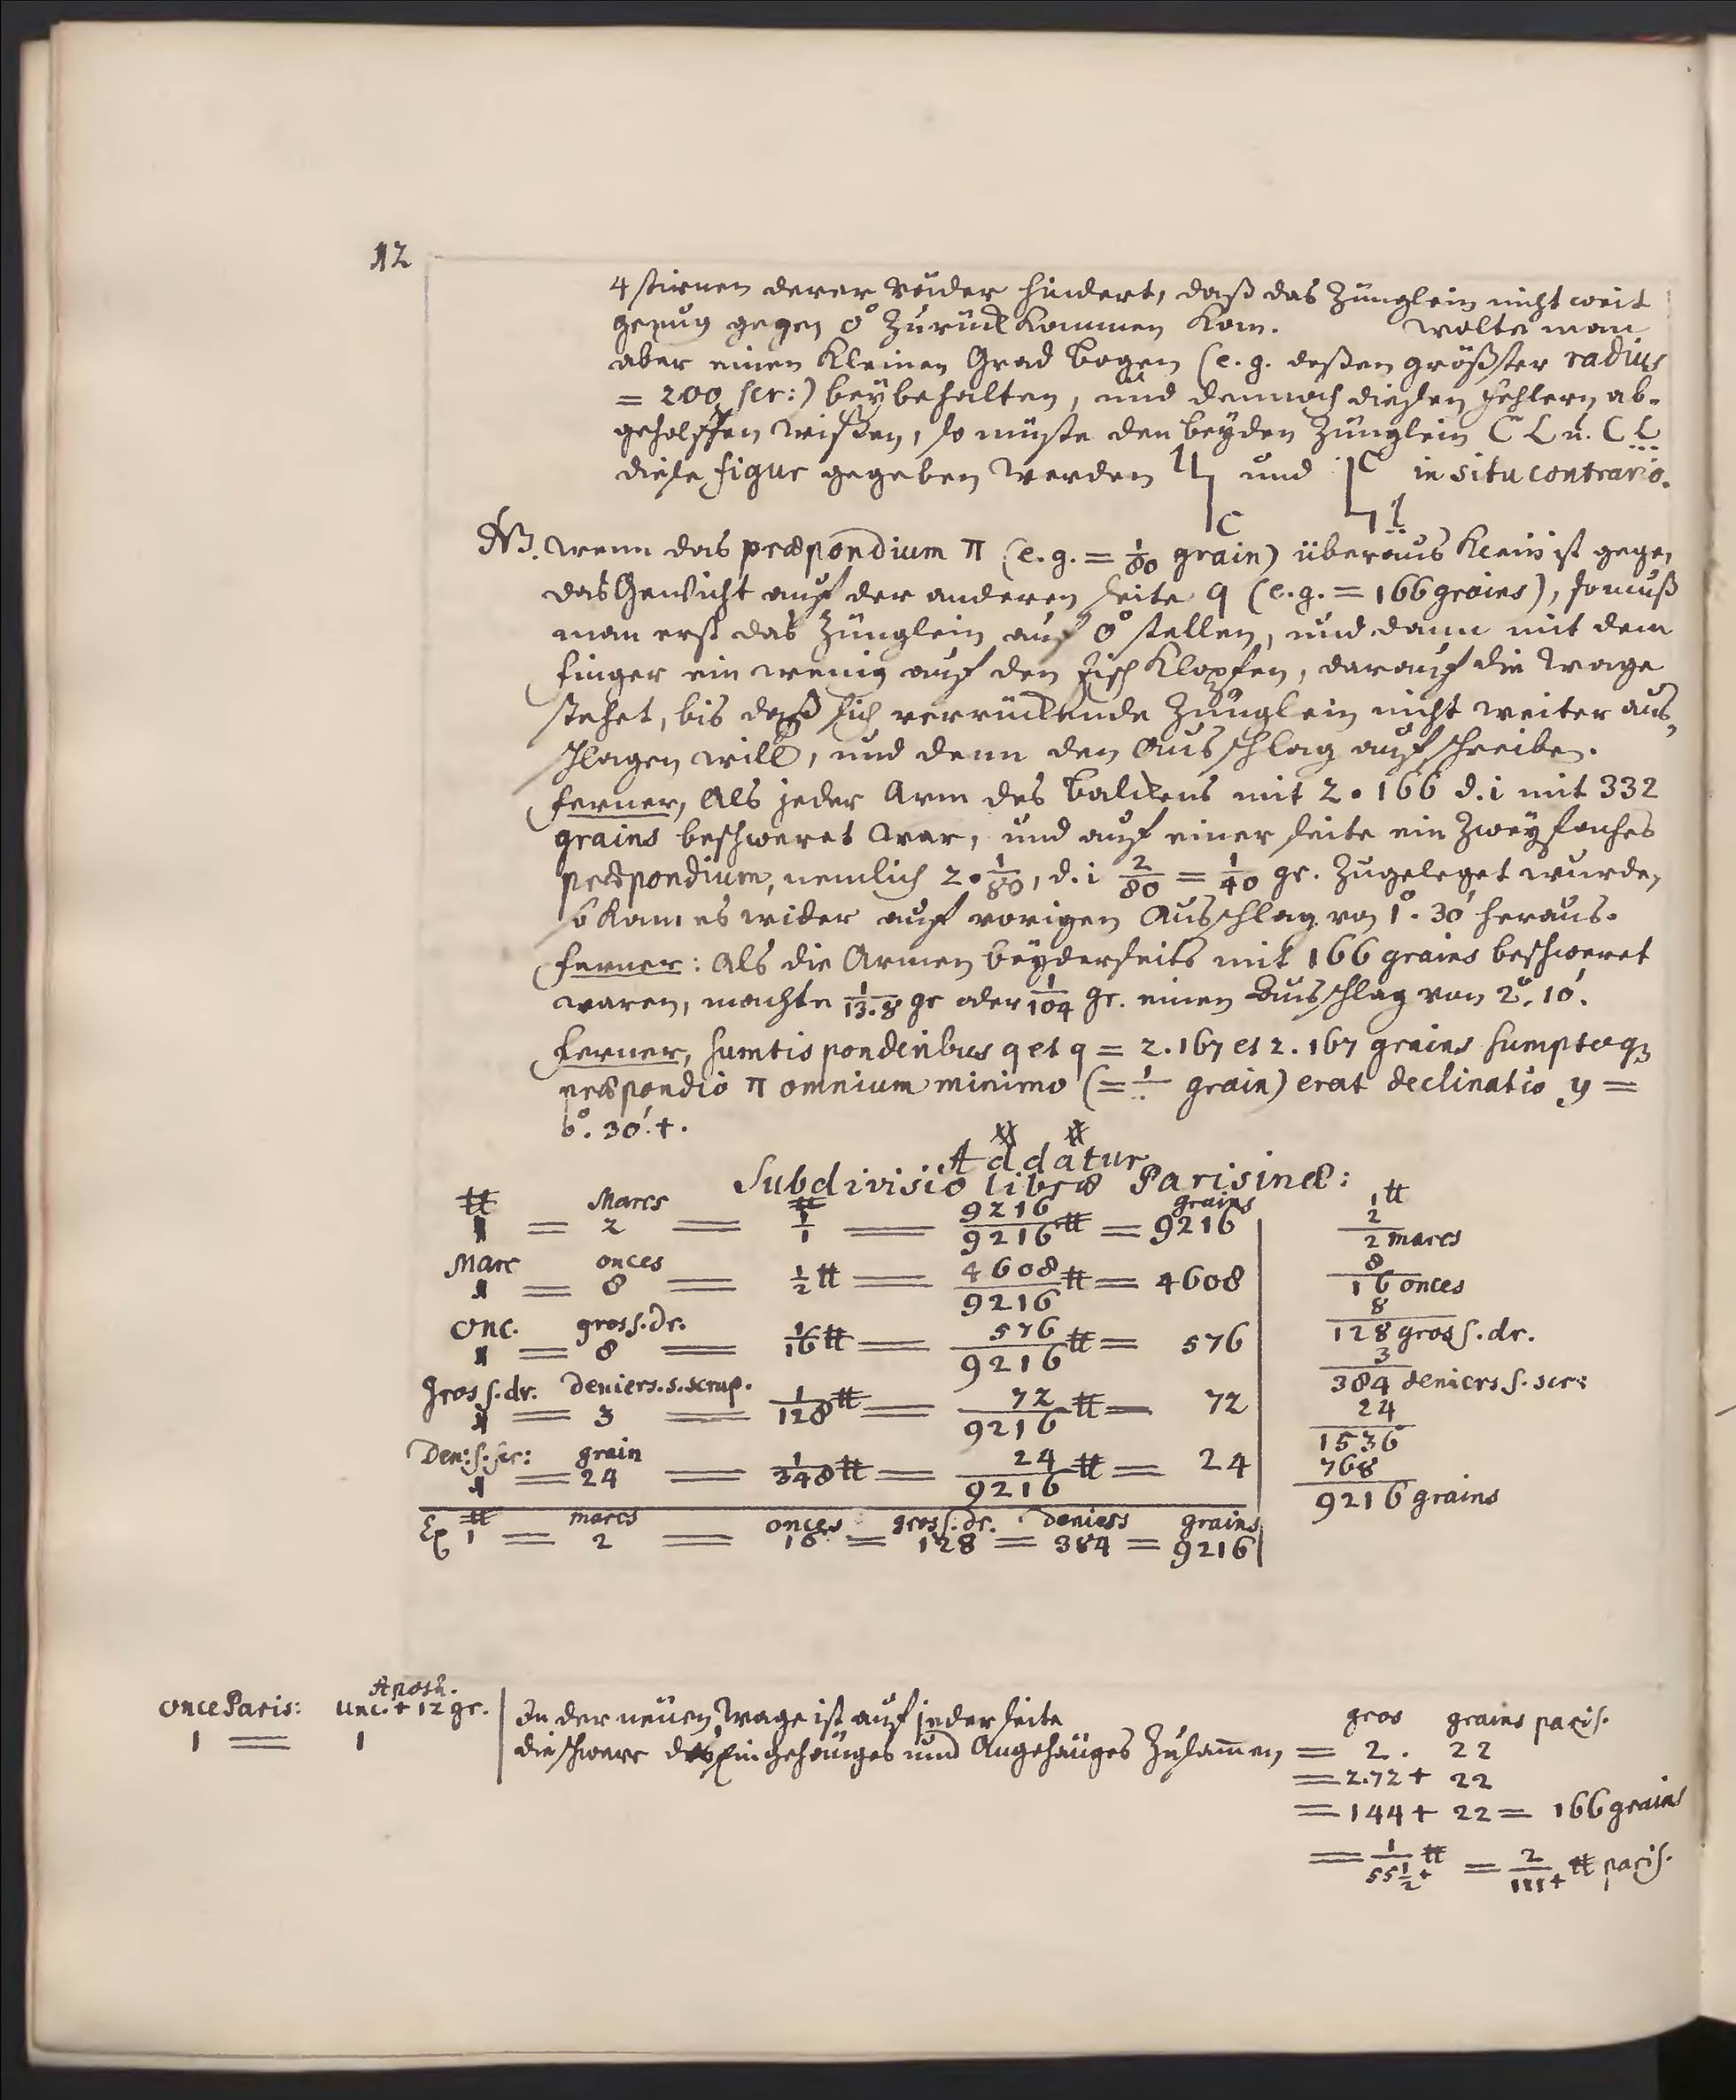 12
4 stirnen derer Räder hindert, daß das Zünglein nicht weit
genug gegen 0° zurück kommen kan. wolte man
aber einen kleinen Grad bogen (e. g. deßen größster radius
= 200 scr:) beybehalten, und dennoch dießen fehlern ab-
geholffen wißen, so müste den beyden Zünglein C L u. C L
diese figur gegeben werden und C in situ contrario.
C
NB. wenn das præpondium π (e. g. = 1/80 grain) überaus klein ist gegen
das Gewicht auf der anderen seite q (e. g. = 166 grains), so muß
man erst das Zünglein auf 0° stellen, und dann mit dem
finger ein wenig auf den Tisch klopfen, darauf die Wage
stehet, bis daß sich verrückende Zünglein nicht weiter aus-
schlagen will, und denn den Ausschlag aufschreiben.
ferner, Als jeder Arm des balckens mit 2 . 166 d. i mit 332
grains beschweret war, und auf einer seite ein zweyfaches
præpondium, nemlich 2 . 1/80, d. i 2/80 = 1/40 gr. zugeleget wurde,
so kam es wider auf vorigen Ausschlag von 1°. 30' heraus.
ferner: Als die Armen beyderseits mit 166 grains beschweret
waren, machte 1/13.8 gr oder 1/104 gr. einen Ausschlag von 2°. 10'.
ferner, sumtis ponderibus q et q = 2.167 et 2.167 grains sumptoq3
præpondio π omnium minimo (= 1/.. grain) erat declinatio y =
0°. 30'. +.
Addatur
Subdivisio libræ Parisinæ:
℔ Marcs ℔ grains
1 = 2 = 1/1 = 9216/9216 ℔ = 9216
Marc onces
1 = 8 = 1/2 ℔ = 4608/9216 ℔ = 4608
Onc. gros s. dr.
1 = 8 = 1/16 ℔ = 576/9216 ℔ = 576
Gros s. dr. Deniers. s. scrup.
1 = 3 = 1/128 ℔ = 72/9216 ℔ = 72
Den: s. scr: grain
1 = 24 = 1/348 ℔ = 24/9216 ℔ = 24
℔ marcs onces gros s. dr. deniers grains
1 = 2 = 16 = 128 = 384 = 9216
1 ℔
2
2 marcs
8
16 onces
8
128 gros s. dr.
3
384 deniers s. scr:
24
1536
768
9216 grains
Apoth.
once Paris: unc. + 12 gr.
1 = 1
In der neuen Wage ist auf jeder seite
die schwere des Eingehänges und Angehänges zusam̅en
gros grains paris.
= 2. 22
= 2.72 + 22
= 144 + 22 = 166 grains
= 1/55½+ ℔ = 2/111+ ℔ paris.